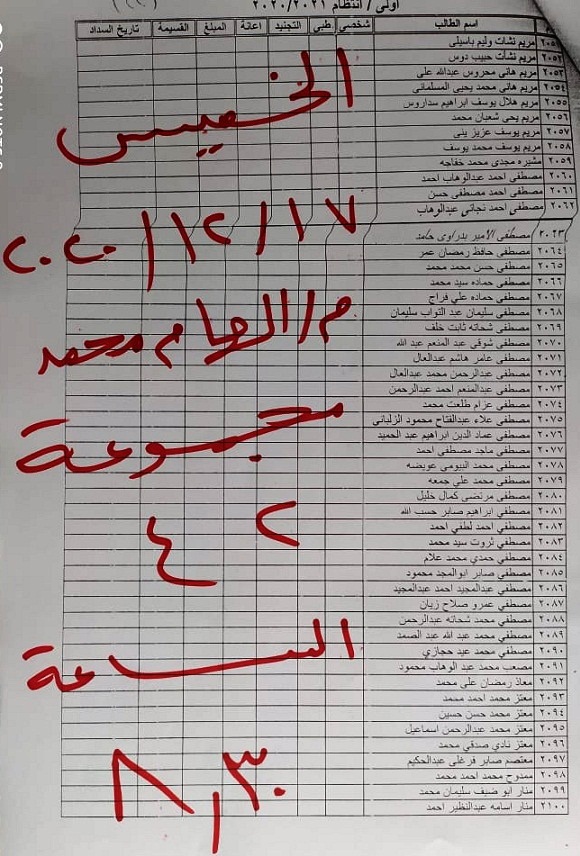 أولى / انتظام ٢٠٢٠/٢٠٢١
اسم الطالب شخصي طبي التجنيد اعانة المبلغ القسيمة تاريخ السداد
٢٠٥١ مريم نشات وليم باسيلي
٢٠٥٢ مريم نشأت حبيب دوس
٢٠٥٣ مريم هاني محروس عبدالله على
٢٠٥٤ مريم هاني محمد يحيى المسلماني
٢٠٥٥ مريم هلال يوسف ابراهيم سداروس
٢٠٥٦ مريم يحى شعبان محمد
٢٠٥٧ مريم يوسف عزيز بنى
٢٠٥٨ مريم يوسف محمد يوسف
٢٠٥٩ مشيره مجدى محمد خفاجه
٢٠٦٠ مصطفى احمد عبدالوهاب احمد
٢٠٦١ مصطفى احمد مصطفى حسن
٢٠٦٢ مصطفى احمد نجاتى عبدالوهاب
٢٠٦٣ مصطفى الأمير بدراوى حامد
٢٠٦٤ مصطفى حافظ رمضان عمر
٢٠٦٥ مصطفى حسن محمد محمد
٢٠٦٦ مصطفى حماده سيد محمد
٢٠٦٧ مصطفى حماده علي فراج
٢٠٦٨ مصطفى سليمان عبد التواب سليمان
٢٠٦٩ مصطفى شحاته ثابت خلف
٢٠٧٠ مصطفى شوقي عبد المنعم عبد الله
٢٠٧١ مصطفى عامر هاشم عبدالعال
٢٠٧٢ مصطفى عبدالرحمن محمد عبدالعال
٢٠٧٣ مصطفى عبدالمنعم احمد عبدالرحمن
٢٠٧٤ مصطفى عزام طلعت محمد
٢٠٧٥ مصطفى علاء عبدالفتاح محمود الزلباني
٢٠٧٦ مصطفى عماد الدين ابراهيم عبد الحميد
٢٠٧٧ مصطفى ماجد مصطفى احمد
٢٠٧٨ مصطفى محمد البيومى عويضه
٢٠٧٩ مصطفى محمد علي جمعه
٢٠٨٠ مصطفى مرتضى كمال خليل
٢٠٨١ مصطفي ابراهيم صابر حسب الله
٢٠٨٢ مصطفي احمد لطفي احمد
٢٠٨٣ مصطفي ثروت سيد محمد
٢٠٨٤ مصطفي حمدي محمد علام
٢٠٨٥ مصطفي صابر ابوالمجد محمود
٢٠٨٦ مصطفي عبدالمجيد احمد عبدالمجيد
٢٠٨٧ مصطفي عمرو صلاح زيان
٢٠٨٨ مصطفي محمد شحاته عبدالرحمن
٢٠٨٩ مصطفي محمد عبد الله عبد الصمد
٢٠٩٠ مصطفي محمد عيد حجازي
٢٠٩١ مصعب محمد عبد الوهاب محمود
٢٠٩٢ معاذ رمضان على محمد
٢٠٩٣ معتز محمد احمد محمد
٢٠٩٤ معتز محمد حسن حسين
٢٠٩٥ معتز محمد عبدالرحمن اسماعيل
٢٠٩٦ معتز نادي صدقي محمد
٢٠٩٧ معتصم صابر فرغلى عبدالحكيم
٢٠٩٨ ممدوح محمد احمد محمد
٢٠٩٩ منار ابو ضيف سليمان محمد
٢١٠٠ منار اسامه عبدالنظير احمد
الخميس
١٧/١٢/٢٠٢٠
م/ الهام محمد
مجموعة
٢ ٤
الساعة
٨,٣٠